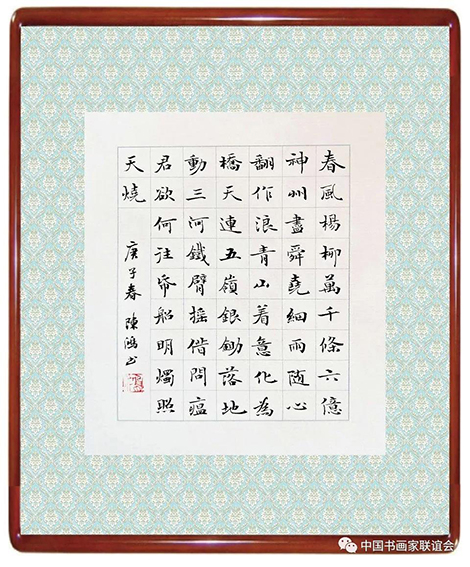 春風楊柳萬千條六億
神州盡舜堯細雨随心
翻作浪青山着意化為
橋天連五嶺銀鋤落地
動三河鐵臂摇借問瘟
君欲何往帋船明燭照
天燒
庚子春 陳鴻书
中国书画家联谊会